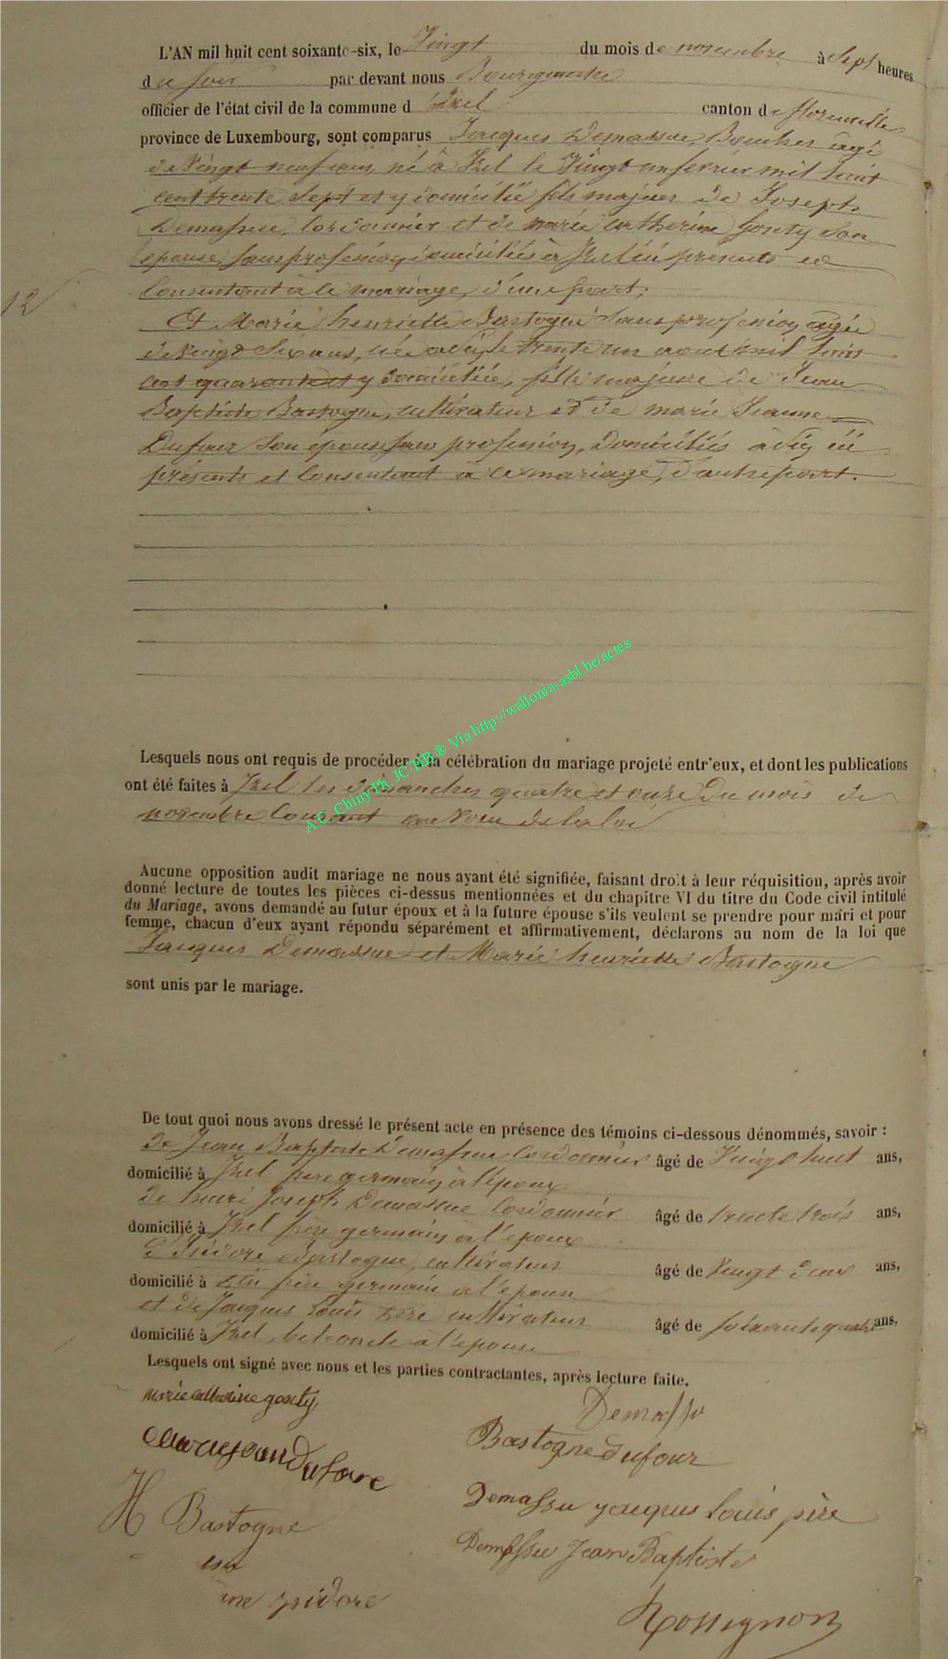 L'AN mil huit cent soixante-six, le Vingt du mois de novembre à Sept heures
du soir par devant nous Bourgmestre
officier de l'état civil de la commune d'Izel canton de florenville
province de Luxembourg, sont comparus Jacques Demassue, Boucher âgé
de Vingt neuf ans, né à Izel le Vingt un février mil huit
cent trente Sept et y domicilié fils majeur de Joseph
Demassue, Cordonnier et de marie catherine Gonty Son
épouse, Sans profession, domiciliés à Izel ici présents et
Consentant à ce mariage, d'une part;
12
Et Marie henriette Bastogne Sans profession, agée
de Vingt Six ans, née à le trente un aout mil huit
cent quarante et y domiciliée, fille majeure de Jean
Baptiste Bastogne, cultivateur et de marie Jeanne
Dufour Son épouse Sans profession, Domiciliés à ici
présents et Consentant à ce mariage, d'autre part.
Lesquels nous ont requis de procéder à la célébration du mariage projeté entr'eux, et dont les publications
ont été faites à Izel les dimanches quatre et onze Du mois de
novembre Courant au Vœu de la loi
A.E. Chiny Ph JC HB ® Via http://wallonia-asbl.be/actes
Aucune opposition audit mariage ne nous ayant été signifiée, faisant droit à leur réquisition, après avoir
donné lecture de toutes les pièces ci-dessus mentionnées et du chapitre VI du titre du Code civil intitulé
du Mariage, avons demandé au futur époux et à la future épouse s'ils veulent se prendre pour mari et pour
femme, chacun d'eux ayant répondu séparément et affirmativement, déclarons au nom de la loi que
Jacques Demassue et Marie henriette Bastogne
sont unis par le mariage.
De tout quoi nous avons dressé le présent acte en présence des témoins ci-dessous dénommés, savoir :
de Jean Baptiste Demassue Cordonnier âgé de Vingt huit ans,
domicilié à Izel frère germain à l'époux
de henri Joseph Demassue Cordonnier âgé de trente trois ans,
domicilié à Izel frère germain à l'époux
D'Isidore Bastogne, cultivateur âgé de Vingt deux ans,
domicilié à frère germain à l'épouse
et de Jacques Louis cultivateur âgé de soixante quatre ans,
domicilié à Izel, à l'épouse
Lesquels ont signé avec nous et les parties contractantes, après lecture faite.
marie catherine gonty, Demassu
Dufoure Bastogne dufour
H Bastogne Demassu yacques Louis père
Demassu Jean Baptiste
ysidore
Rossignon